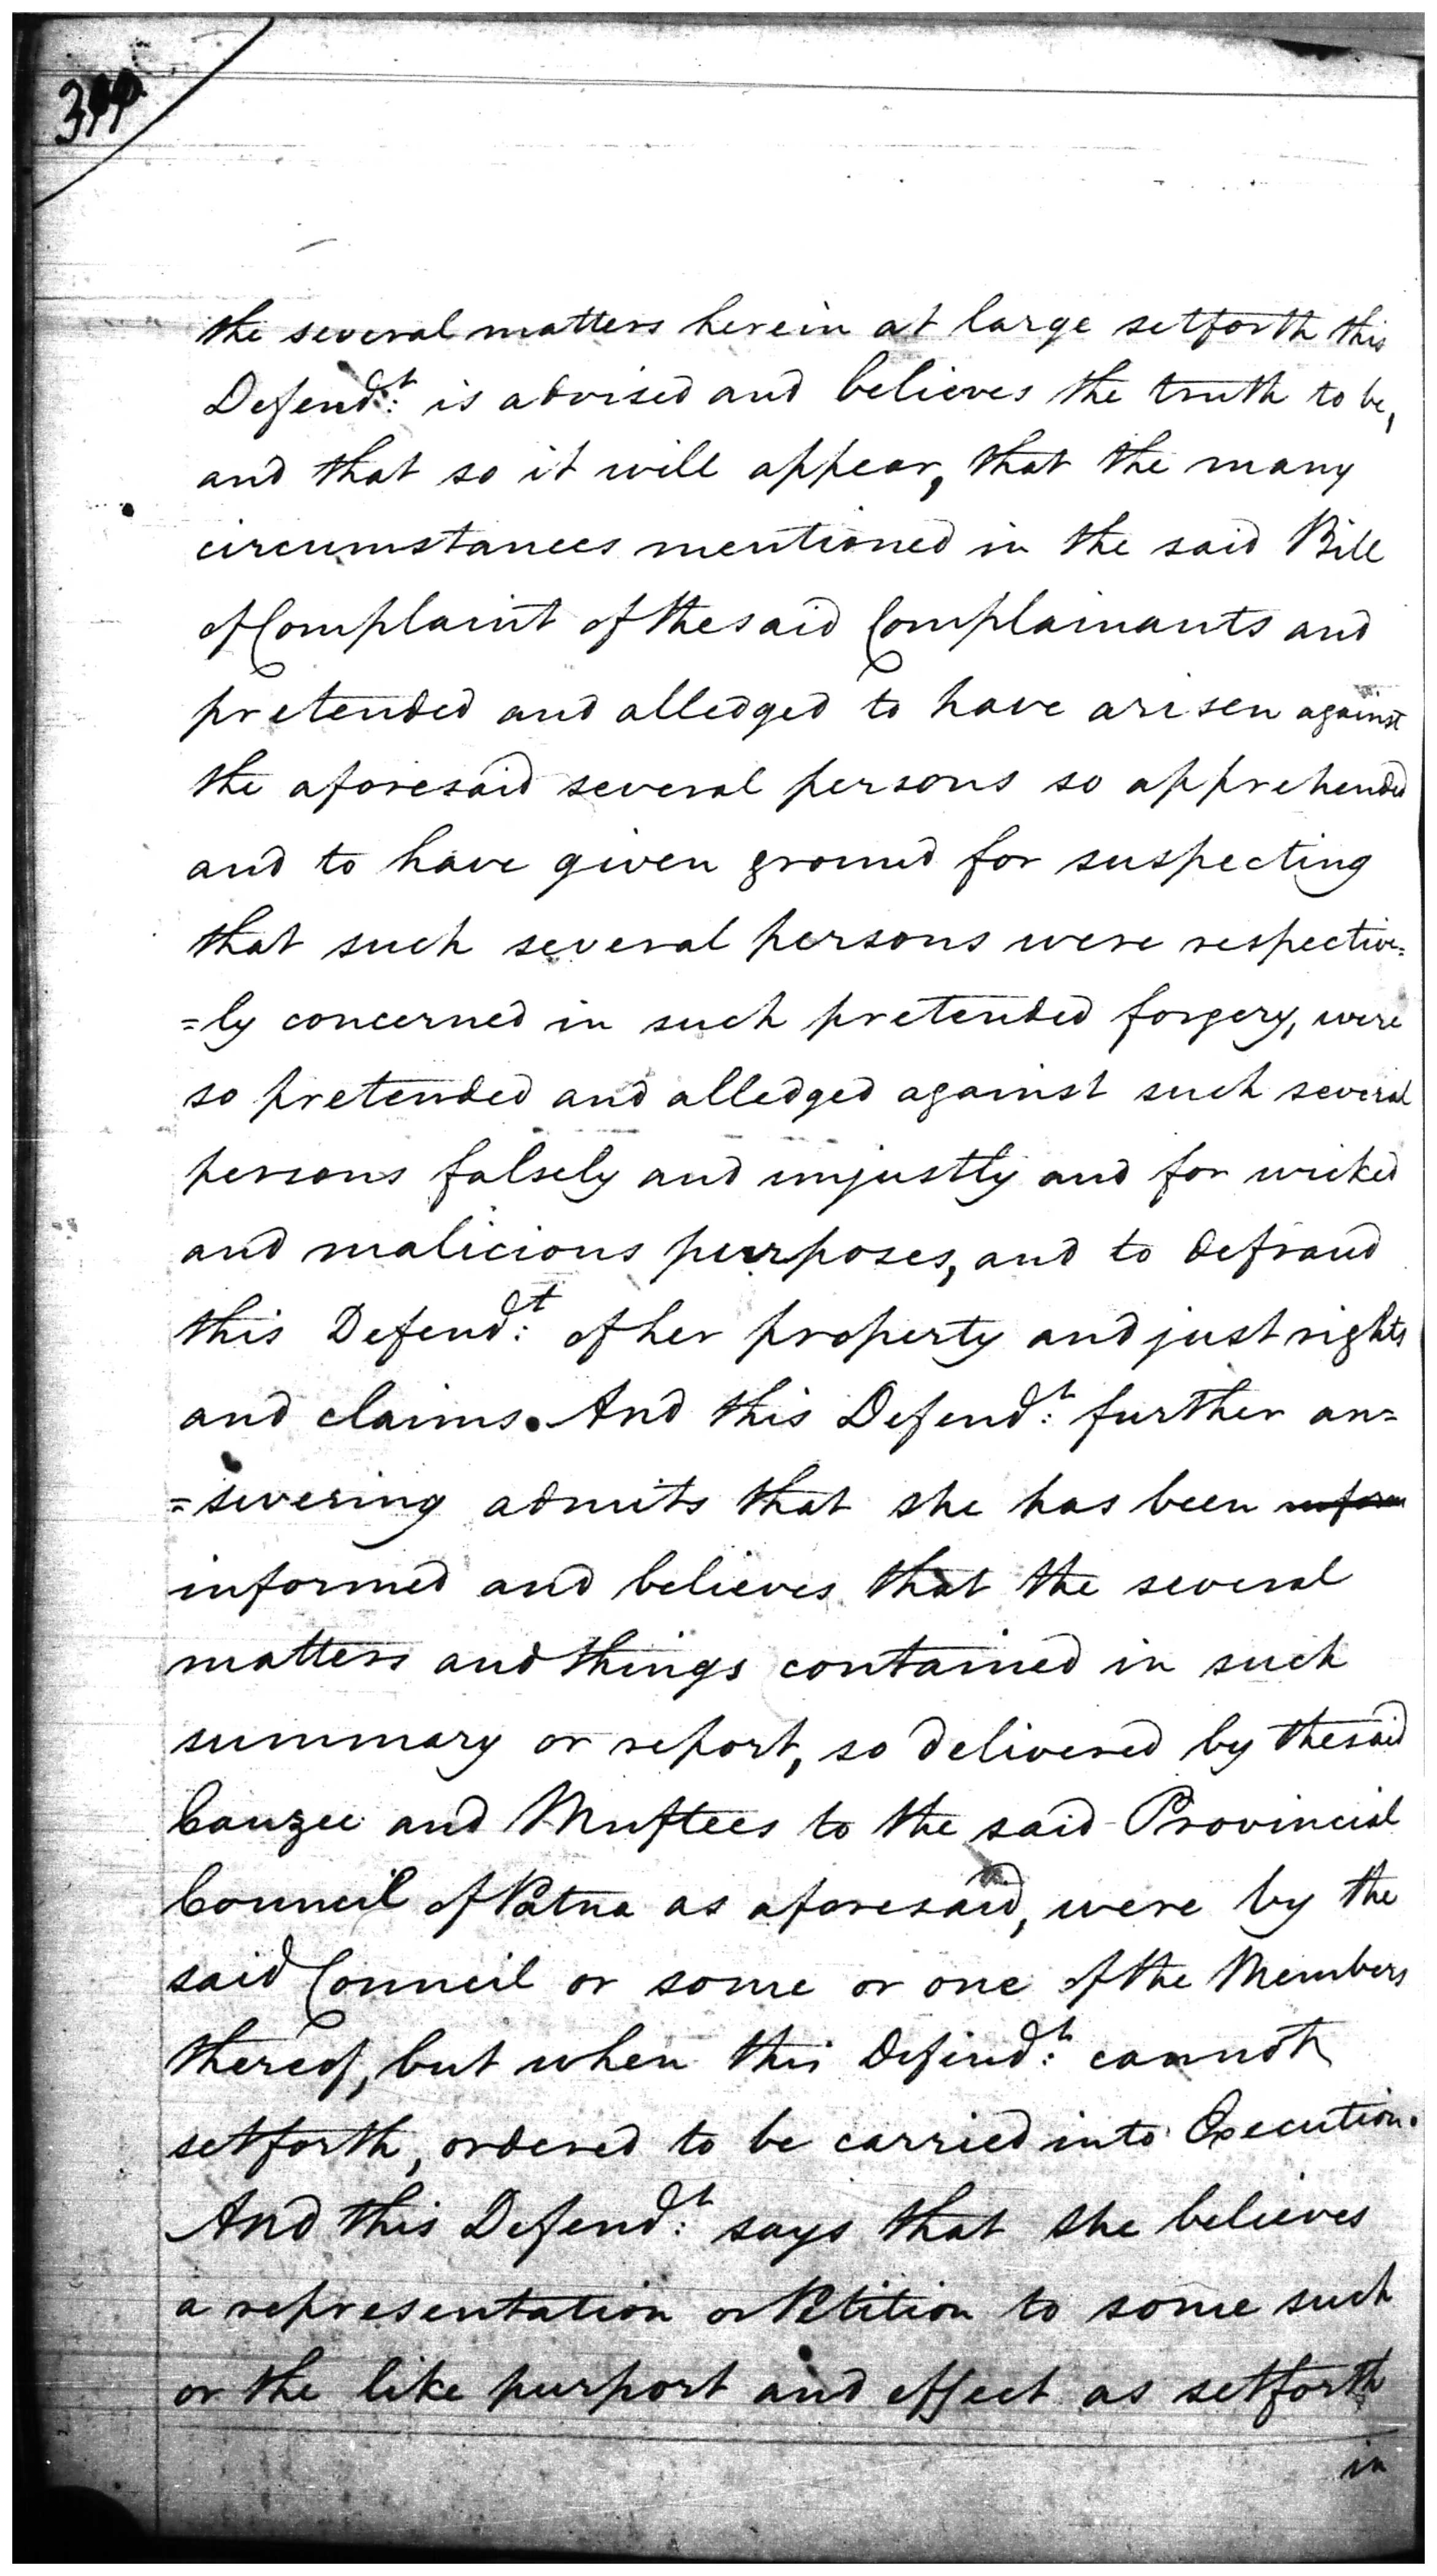 the several matters herein at large setforth this
Defend:t is advised and believes the truth to be,
and that so it will appear, that the many
circumstances mentioned in the said Bill
of Complaint of the said Complainants and
pretended and alledged to have arisen against
the aforesaid several persons so apprehended
and to have given ground for suspecting
that such several persons were respective=
=ly concerned in such pretended forgery, were
so pretended and alledged against such several
persons falsely and unjustly and for wicked
and malicious purposes, and to defraud
this Defend:t of her property and just rights
and claims. And this Defend:t further an=
=swering admits that she has been inform
informed and believes that the several
matters and things contained in such
summary or report, so delivered by the said
Cauzee and Muftees to the said Provincial
Council of Patna as aforesaid, were by the
said Council or some or one of the Members
thereof, but when this Defend:t cannot
setforth, ordered to be carried into Execution.
And this Defend:t says that she believes
a representation or Petition to some such
or the like purport and effect as setforth
in